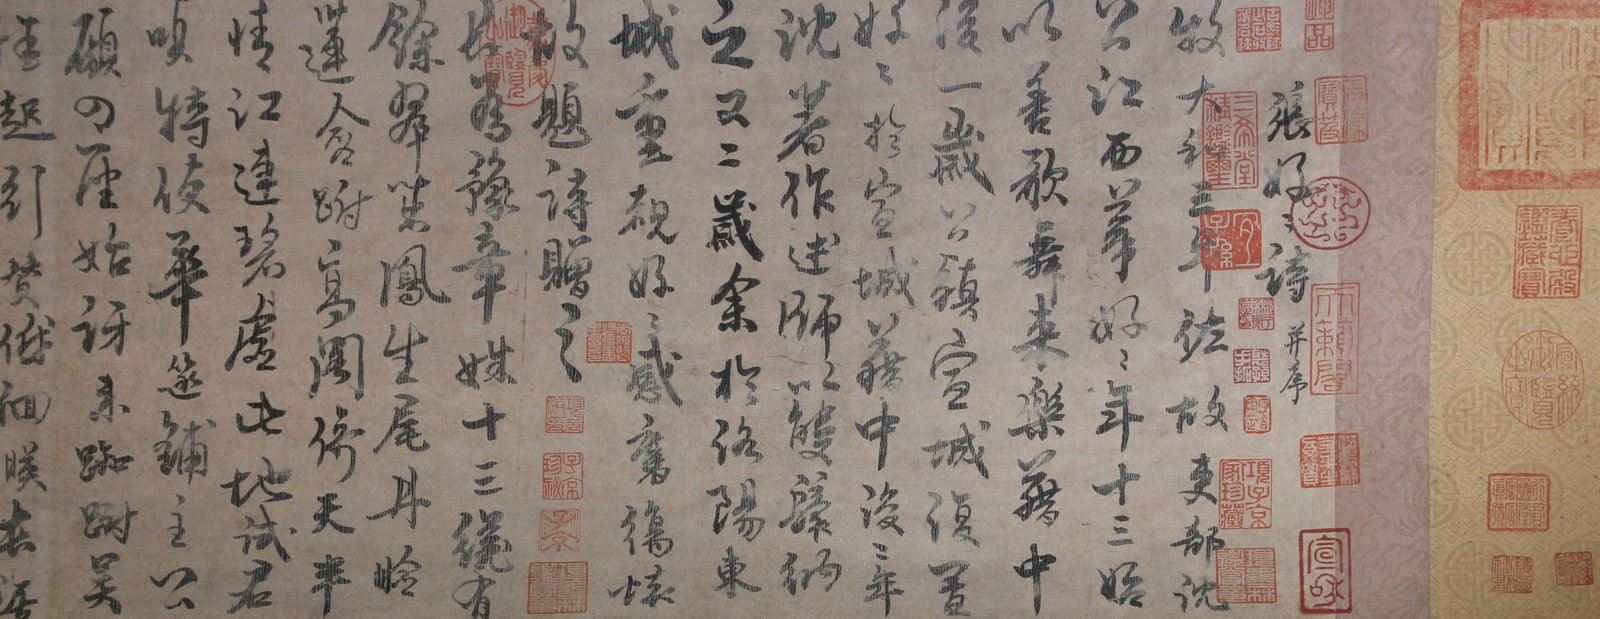 張好好詩 并序
牧大和三年佐故吏部沈
公江西幕好好年十三始
以善歌舞來樂籍中
後一歲公鎮宣城復置
好好於宣城籍中後二年
沈著作述師以雙鬟納
之又二歲余於洛陽東
城重覩好好感舊傷懷
故題詩贈之
君為豫章姝十三纔有
餘翠茁鳳生尾丹臉
蓮含跗高閣倚天半
晴江連碧虛此地試君
唱特使華筵鋪主公
顧四座始訝来踟蹰吴
娃起引贊低徊暎長裾